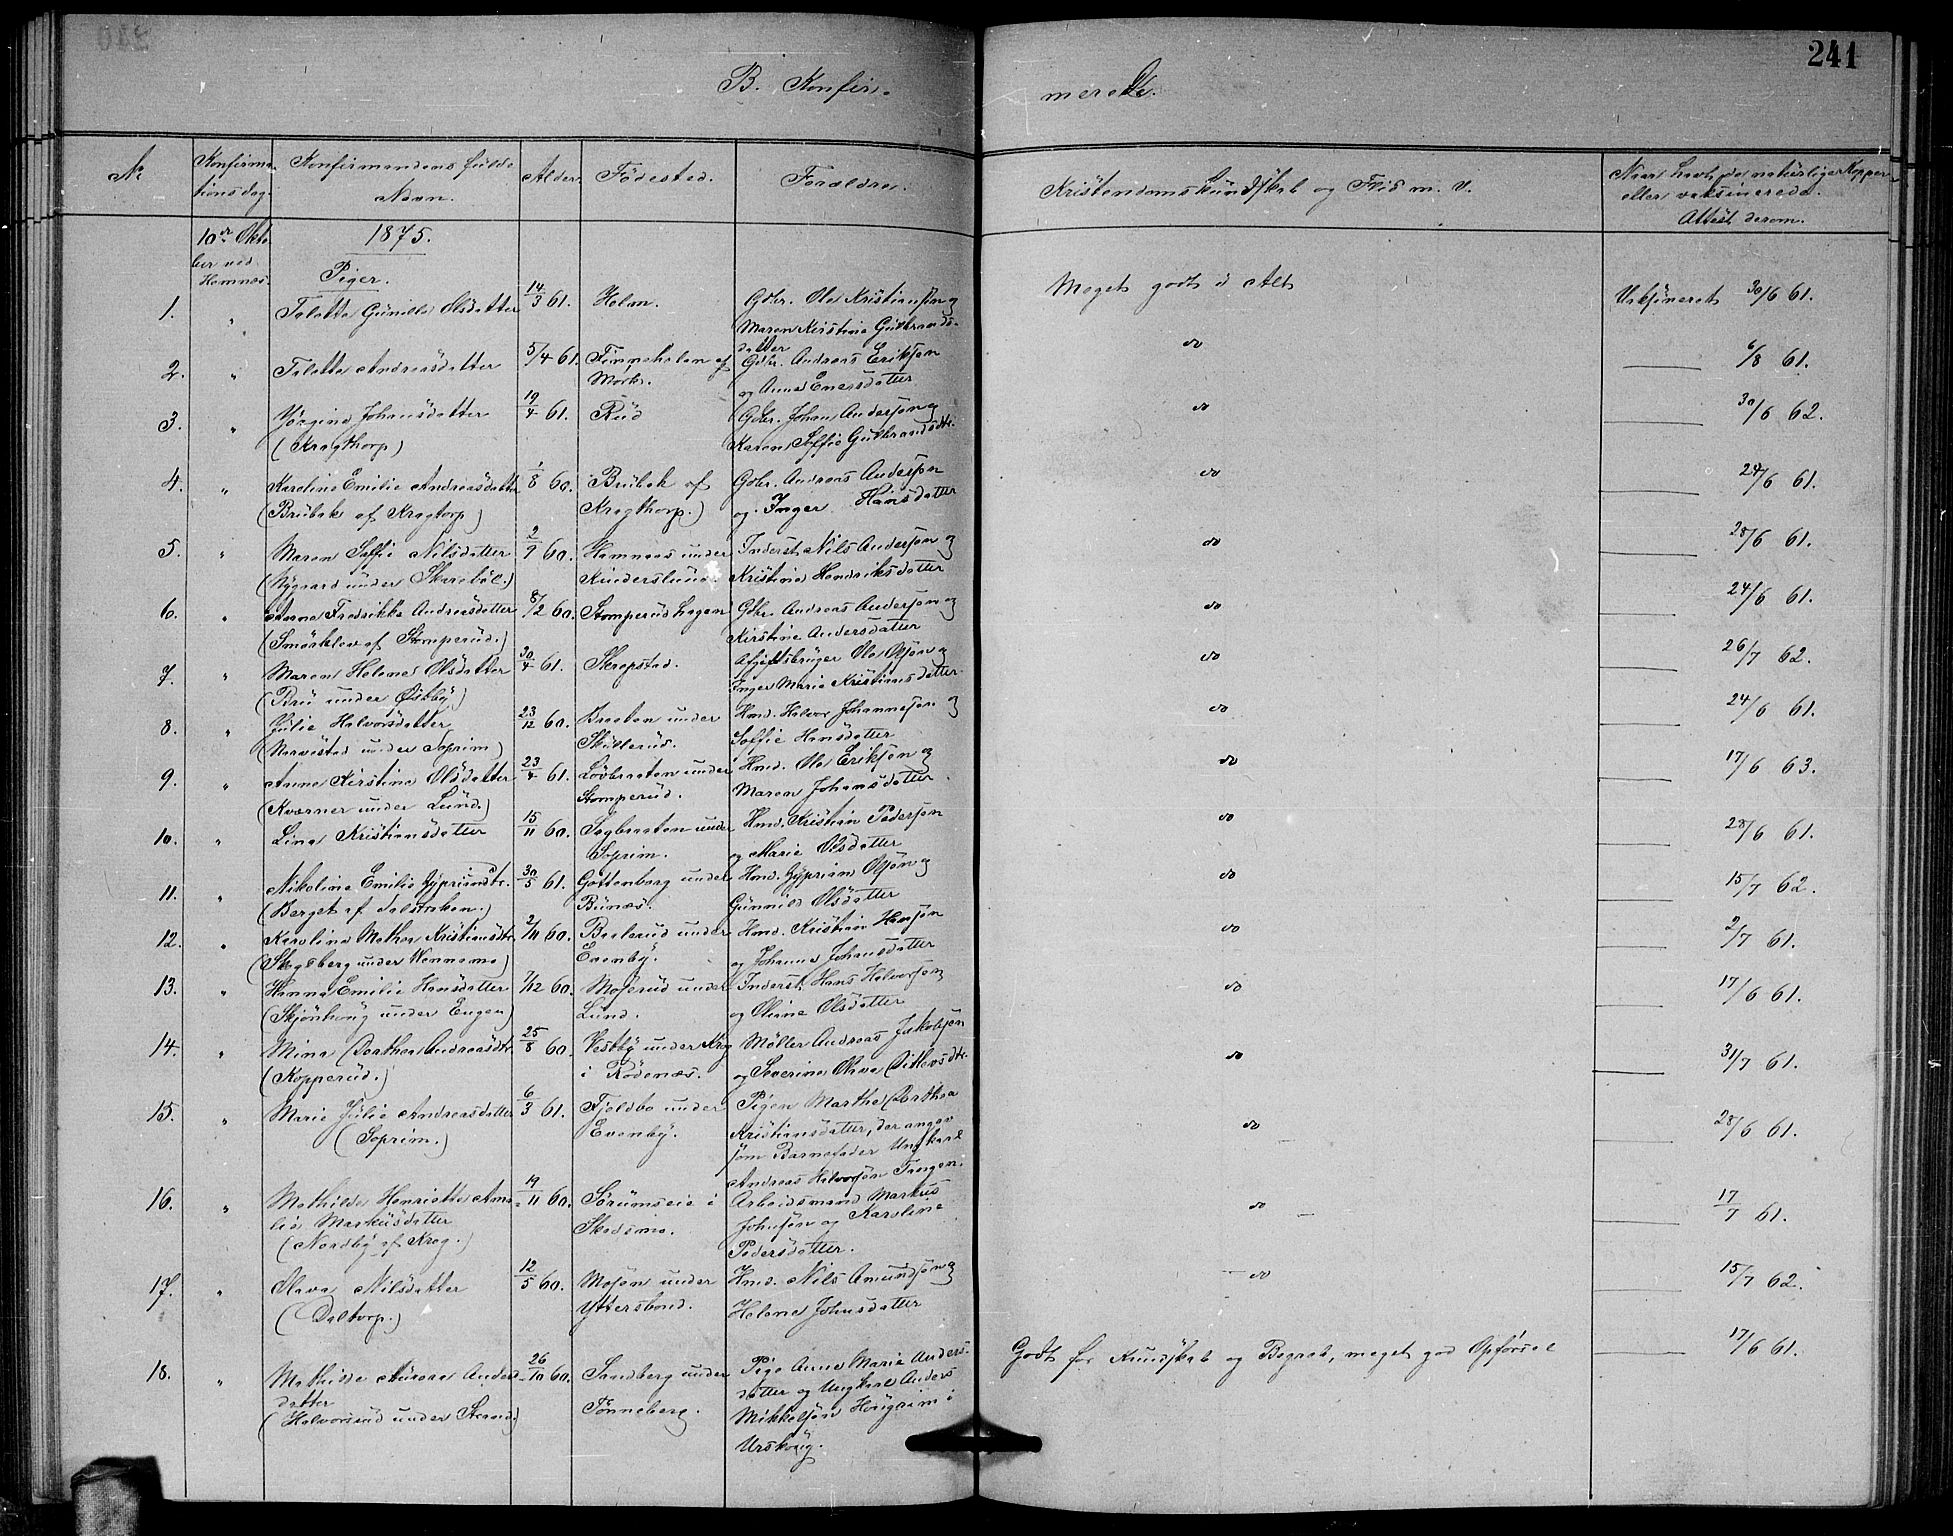 241
B. Konfir-
merede.
No
Konfirma-
tionsdag.
Konfirmandens fulde
Navn.
Alder.
Födested.
Forældre.
Kristendomskundskab og Flid m. v.
Naar havt de naturlige Kopper
eller vaksinerede.
Attest derom.
10de Okto-
ber ved
Hemnæs.
1875.
Piger.
1. " Talette Gunille Olsdatter 14/3 61. Holm. Gdbr. Ole Kristiansön og
Maren Kristine Gulbrands-
datter
Meget godt i Alt
Vaksineret 30/6 61.
2. " Talette Andreasdatter 5/4 61. Finneholen af
Mork. Gdbr. Andreas Eriksön
og Anne Enersdatter
do 6/8 61.
3. " Jörgine Johansdatter
(Kragthorp) 19/4 61. Rud Gdbr. Johan Andersön og
Karen Soffie Gulbrandsdtr.
do 30/6 62.
4. " Karoline Emilie Andreasdatter
(Brubak af Kragtorp) 1/8 60. Brubak af
Kragthorp.) Gdbr. Andreas Andersön
og Inger Hansdatter
do 24/6 61.
5. " Maren Soffie Nilsdatter
(Nygaard under Skareböl.) 2/9 60. Hemnæs under
Kinderslund. Inderst Nils Andersön og
Kristine Hendriksdatter
do 28/6 61.
6. " Anne Fredrikke Andreasdatter
(Smörklev af Stomperud.) 8/2 60. Stomperudhagen Gdbr. Andreas Andersön og
Kirstine Andersdatter
do 24/6 61.
7. " Maren Helene Olsdatter
(Bru under Østby) 30/4 61. Skrepstad. Afgiftsbruger Ole Olsön og
Inger Marie Kristiansdatter
do 26/7 62.
8. " Julie Halvorsdatter
(Narvestad under Soprim) 23/12 60. Braaten under
Skullerud. Hmd. Halvor Johannesön og
Soffie Hansdatter
do 24/6 61.
9. " Anne Kirstine Olsdatter
(Kværner under Lund.) 23/4 61. Lövbraaten under
Stomperud. Hmd. Ole Eriksön og
Maren Johansdatter
do 17/6 63.
10. " Lina Kristiansdatter 15/11 60. Sagbraaten under
Soprim. Hmd. Kristian Pedersön
og Marie Olsdatter
do 28/6 61.
11. " Nikoline Emilie Gypriansdtr.
(Berget af Tolstrehen.) 30/5 61. Gottenborg under
Bunæs. Hmd. Gyprian Olsön og
Gunnild Olsdatter
do 15/7 62.
12. " Karoline Mathea Kristiansdtr.
(Skogsberg under Kinnemo) 2/11 60. Baslerud under
Evenby. Hmd. Kristian Hansön
og Johanne Johansdatter
do 2/7 61.
13. " Hanna Emilie Hansdatter
(Skjönhoug under Eugen) 7/12 60. Moserud under
Lund. Inderst. Hans Halvorsön
og Oline Olsdatter
do 17/6 61.
14. " Mina Dorthea Andreasdtr.
(Kopperud.) 25/8 60. Vestby under Krog
i Rödenæs. Møller Andreas Jakobsön
og Severine Olava Ditlevsdtr.
do 31/7 61.
15. " Marie Julie Andreasdatter
(Soprim.) 6/3 61. Fjeldbo under
Evenby. Pigen Marthe Dorthea
Kristiansdatter, der angav
som Barnefader Ungkarl
Andreas Halvorsön Tangen.
do 28/6 61.
16. " Mathilde Henriette Ama-
lie Markusdatter
(Nordby af Krog.) 19/11 60. Sörumseie i
Skedsmo. Arbeidsmand Markus
Johnsön og Karoline
Pedersdatter.
do 17/7 61.
17. " Olava Nilsdatter
(Daltorp.) 12/5 60. Mosen under
Yttersbond. Hmd. Nils Amundsön og
Helene Johnsdatter
do 15/7 62.
18. " Mathilde Aurora Anders-
datter
(Halvorsrud under Strand.) 26/10 60. Sandberg under
Tönneberg. Pige Anne Marie Anders-
datter og Ungkarl Anders
Mikkelsön Höugrim i
Urskoug.
Godt for Kundskab og Begreb, meget god Opförsel
17/6 61.